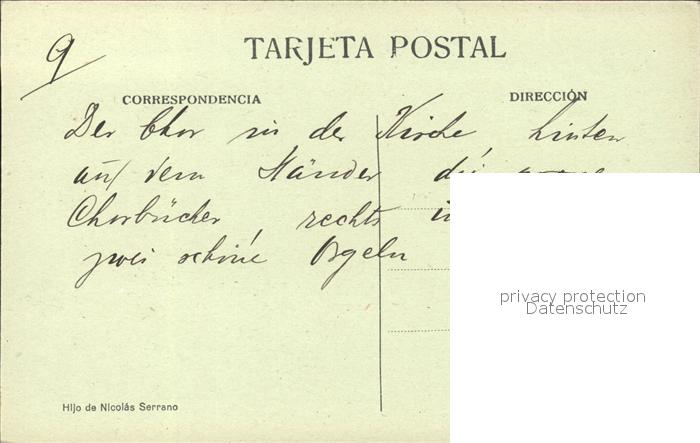 9
TARJETA POSTAL
CORRESPONDENCIA
DIRECCIÓN
Der Chor in der Kirche, hinten
auf dem Ständer die
Chorbücher, rechts
zwei schöne Orgeln
privacy protection
Datenschutz
Hijo de Nicolás Serrano